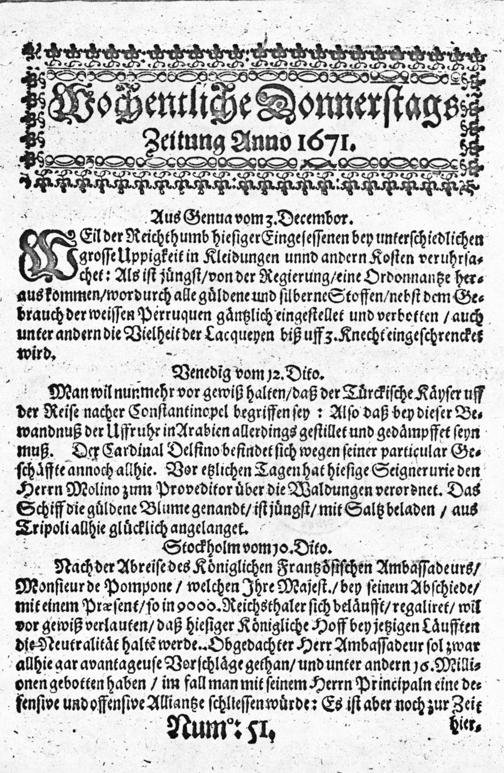 Wochentliche Donnerstags
Zeitung Anno 1671.
Aus Genua vom 3. Decembor.
WEil der Reichthumb hiesiger Eingesessenen bey unterschiedlichen
grosse Uppigkeit in Kleidungen unnd andern Kosten veruhrsa-
chet: Als ist jüngst/ von der Regierung/ eine Ordonnantze her-
aus kommen/ wordurch alle güldene und silberne Stoffen/ nebst dem Ge-
brauch der weissen Perruquen gäntzlich eingestellet und verbotten / auch
unter andern die Vielheit der Lacqueyen biß uff 3. Knecht eingeschrencket
wird.
Venedig vom 12. Dito.
Man wil nunmehr vor gewiß halten/ daß der Türckische Käyser uff
der Reise nacher Constantinopel begriffen sey : Also daß bey dieser Be-
wandnuß der Uffruhr in Arabien allerdings gestillet und gedämpffet seyn
muß. Der Cardinal Delfino befindet sich wegen seiner particular Ge-
schäffte annoch allhie. Vor etzlichen Tagen hat hiesige Seignerurie den
Herrn Molino zum Proveditor über die Waldungen verordnet. Das
Schiff die güldene Blume genandt/ ist jüngst/ mit Saltz beladen / aus
Tripoli allhie glücklich angelanget.
Stockholm vom 10. Dito.
Nach der Abreise des Königlichen Frantzösischen Ambassadeurs/
Monsieur de Pompone / welchen Ihre Majest./ bey seinem Abschiede/
mit einem Præsent/ so in 9000. Reichsthaler sich beläufft/ regaliret/ wil
vor gewiß verlauten/ daß hiesiger Königliche Hoff bey jetzigen Läufften
die Neutralität haltē werde. Obgedachter Herr Ambassadeur sol zwar
allhie gar avantageuse Vorschläge gethan/ und unter andern 16. Milli-
onen gebotten haben / im fall man mit seinem Herrn Principaln eine de-
fensive und offensive Alliantze schliessen würde: Es ist aber noch zur Zeit
Num°: 51. hier-